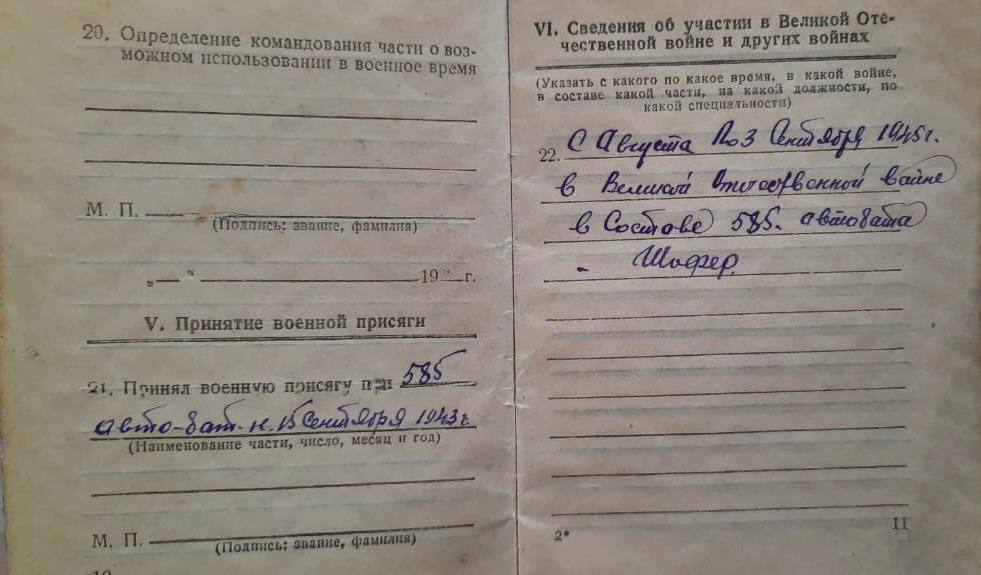 20. Определение командования части о воз-
можном использовании в военное время
М. П.
(Подпись: звание, фамилия)
„ — “ 19 г.
V. Принятие военной присяги
21. Принял военную присягу при 585
авто-бат-н. 15 Сентября 1943 г
(Наименование части, число, месяц и год)
М. П.
(Подпись: звание, фамилия)
10
VI. Сведения об участии в Великой Оте-
чественной войне и других войнах
(Указать с какого по какое время, в какой войне,
в составе какой части, на какой должности, по
какой специальности)
22. С Августа По 3 Сентября 1945 г.
в Великой Отечественной войне
в Составе 585. автобата
- Шофер.
2*
11